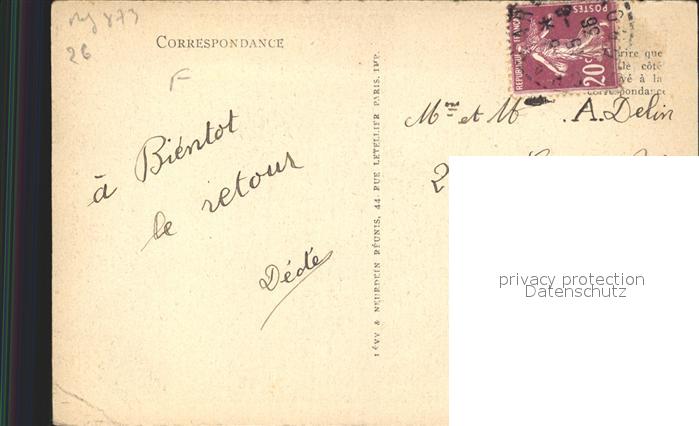 CORRESPONDANCE
26
F
à Bientot
le retour
Dédé
LÉVY & NEURDEIN RÉUNIS, 44, RUE LETELLIER PARIS, IMP.
REPUBLIQUE FRANÇAISE
POSTES
20c
36
rire que
le côté
vé à la
correspondance
Mme et M A. Delin
2
privacy protection
Datenschutz